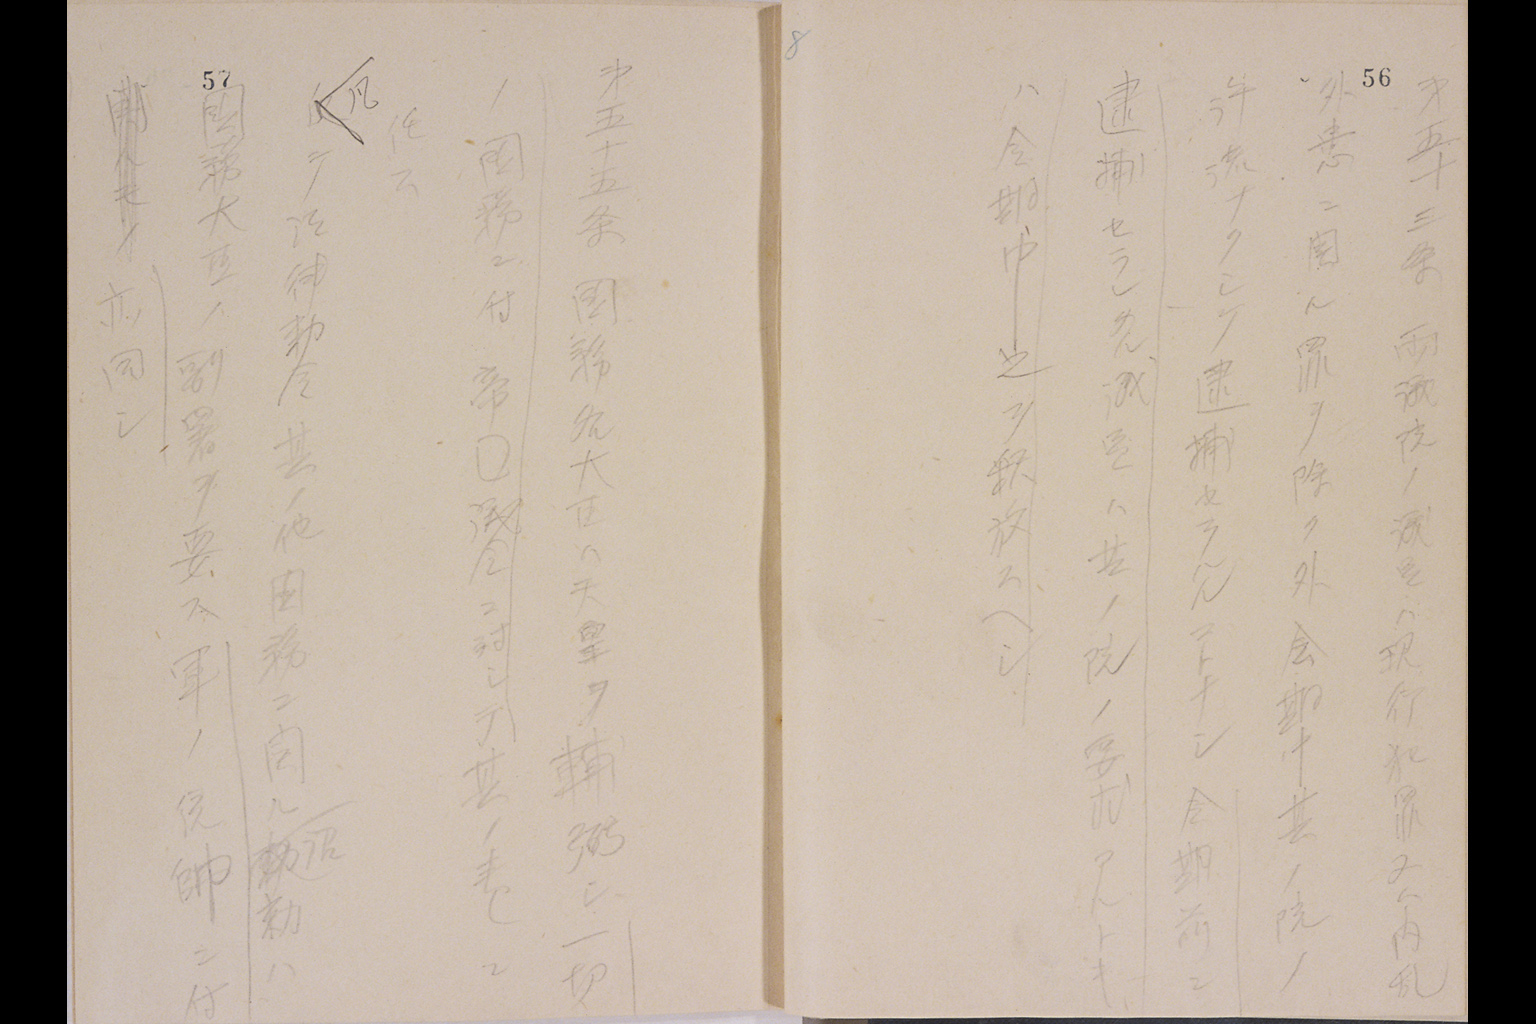 56
第五十三条 両議院ノ議員ハ現行犯罪又ハ内乱
外患ニ関ル罪ヲ除ク外会期中其ノ院ノ
許諾ナクシテ逮捕セラルルコトナシ会期前ニ
逮捕セラレタル議員ハ其ノ院ノ要求アルトキ
ハ会期中之ヲ釈放スヘシ
8
57
第五十五条 国務各大臣ハ天皇ヲ輔弼シ一切
ノ国務ニ付帝国議会ニ対シテ其ノ責ニ
任ス
凡
テ法律勅令其ノ他国務ニ関ル詔勅ハ
国務大臣ノ副署ヲ要ス軍ノ統帥ニ付
亦同シ